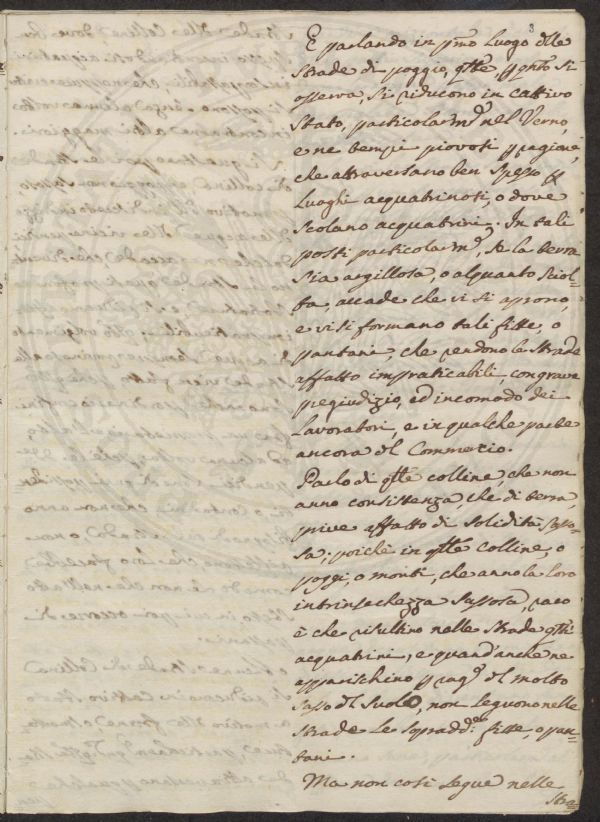 3
E parlando in pmo Luogo delle
strade di poggio, queste, p qnto si
osserva, si riducono in cattivo
stato, particolarmte nel Verno,
e ne tempi piovosi p cagione,
che attraversano ben spesso p
Luoghi acquatrinosi, o dove
scolano acquatrini. In tali
posti particolarmte, se la terra
sia argillosa, o alquanto sciol=
ta, accade che vi si aprono,
e vi si formano tali fitte, o
pantani, che rendono le strade
affatto impraticabili, con grave
pregiudizio, ed incomodo dei
Lavoratori, e in qualche parte
ancora del Commercio.
Parlo di qlle colline, che non
anno consistenza, che di terra,
prive affatto di solidità sasso=
sa: poichè in qlle colline, o
poggi, o monti, che anno la loro
intrinsechezza sassosa, raro
è che risultino nelle strade qsti
acquatrini, e quand'anche ne
apparischino p cagne del molto
sasso del suolo, non seguono nelle
strade le sopradde fitte, o pan=
tani.
Ma non così segue nelle
stra=